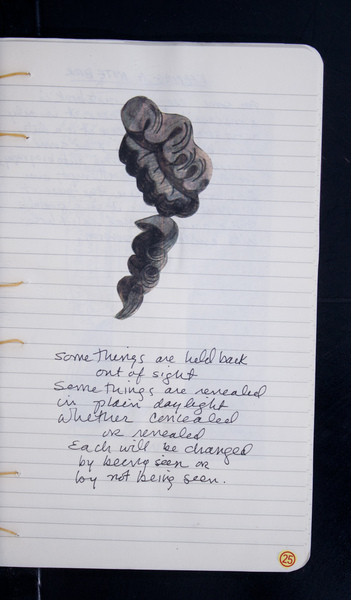 some things are held back
out of sight
Some things are revealed
in plain daylight
whether concealed
or revealed
Each will be changed
by being seen or
by not being seen.
25